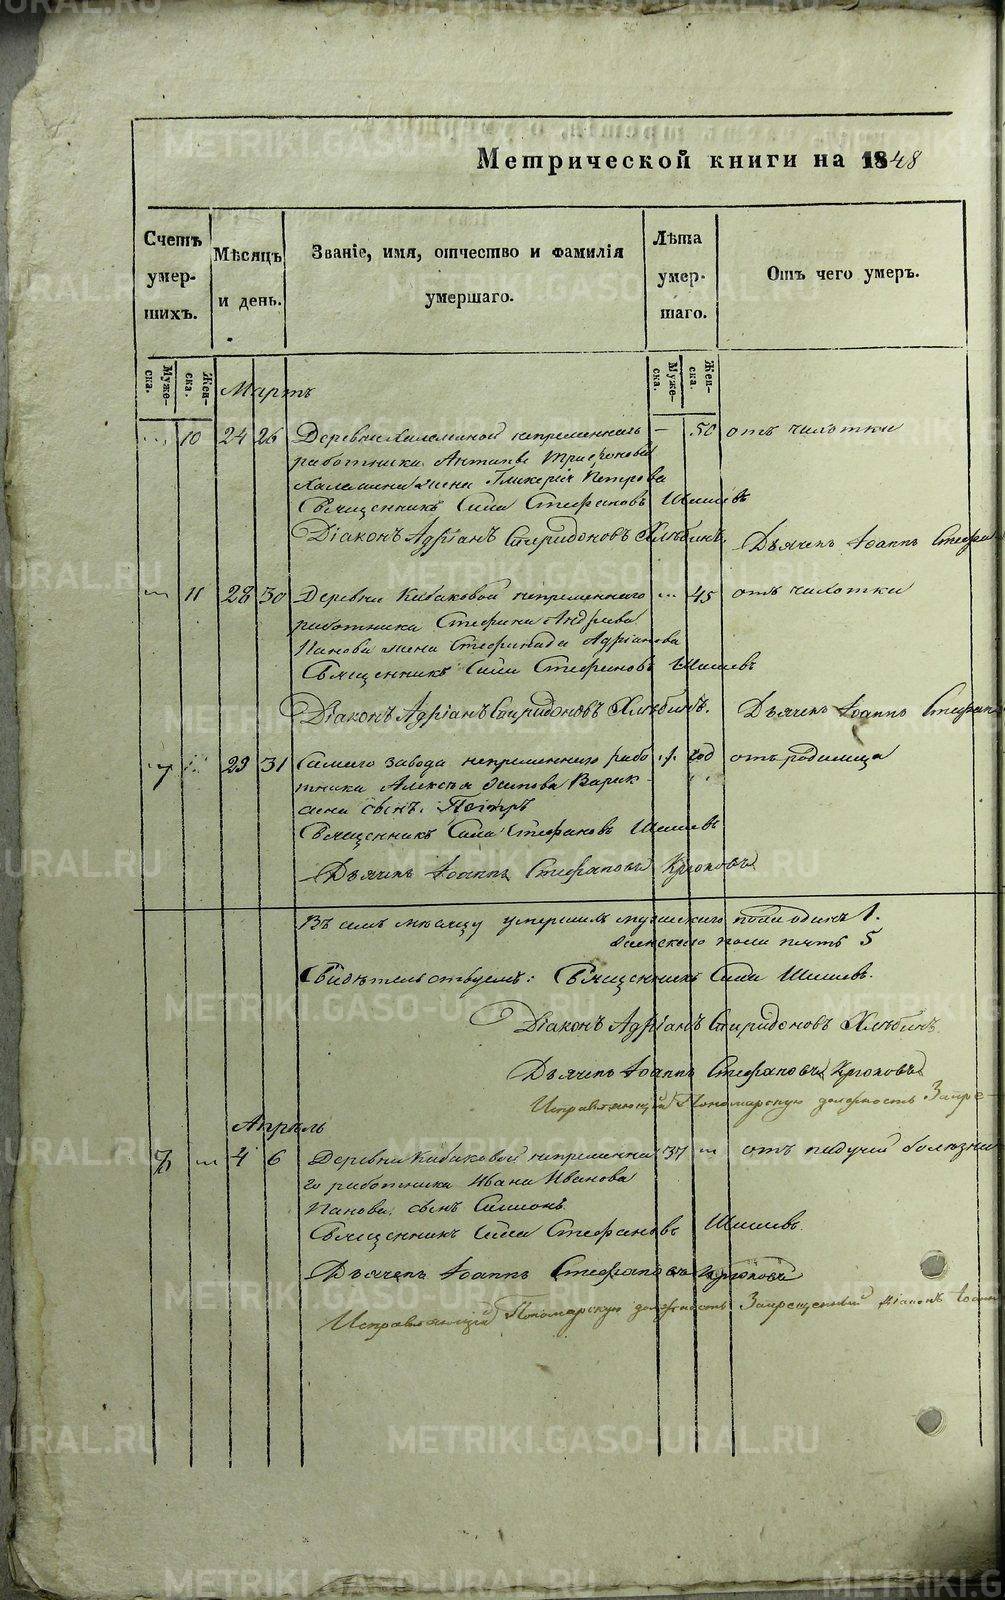 Метрической книги на 1848
Счетъ умер-шихъ.
Мѣсяцъ и день.
Званіе, имя, отчество и фамилія умершаго.
Лѣта умер-шаго.
Отъ чего умеръ.
Муже-ска.
Жен-ска.
Муже-ска.
Жен-ска.
Мартъ
10 24 26 Деревни непременнаго — 50 отъ чахотки
работника Антипы Трифонова
жена Гликерія Петрова
Священникъ Сила Стефановъ Шишевъ
Діаконъ Адріанъ Спиридоновъ Хлѣбинъ. Дьячекъ Іоаннъ Стефан
11 28 30 Деревни Кибаковой непременнаго 45 отъ чахотки
работника Стефана Андреева
Панова жена Стефанида Адріанова
Священникъ Сила Стефановъ Шишевъ
Діаконъ Адріанъ Спиридоновъ Хлѣбинъ. Дьячекъ Іоаннъ Стефан
29 31 Самаго завода непременнаго рабо 1 год отъ родимца
тника Алексѣя Осипова
сынъ Петръ
Священникъ Сила Стефановъ Шишевъ
Дьячекъ Іоаннъ Стефановъ Крюковъ
Въ семъ мѣсяцѣ умершихъ мужескаго пола одинъ 1.
женскаго пола пять 5
Свидѣтельствуемъ: Священникъ Сила Шишевъ.
Діаконъ Адріанъ Спиридоновъ Хлѣбинъ
Дьячекъ Іоаннъ Стефановъ Крюковъ
Исправляющій Пономарскую должность Запре-
Апрѣль
4 6 Деревни Кибаковой непременна 37 отъ падучей болезни
го работника Ивана Иванова
Панова сынъ Симеонъ
Священникъ Сила Стефановъ Шишевъ.
Дьячекъ Іоаннъ Стефановъ Крюковъ
Исправляющій Пономарскую должность Запрещенный діаконъ
METRIKI.GASO-URAL.RU